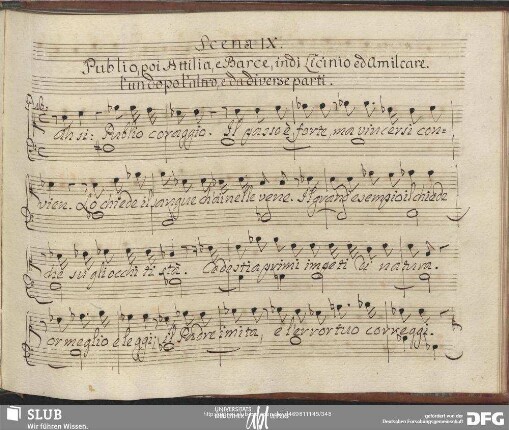 Scena IX
Publio, poi Attilia, e Barce, indi Licinio ed Amilcare.
l'un dopo l'altro, e da diverse parti.
Publ:
Ah si: Publio coraggio. Il passo è forte, ma vincersi con=
vien. Lo chiede il sangue ch'ai nelle vene. Il grand'esempio il chiede
che sù gli occhi ti stà. Cedesti a primi impeti di natura.
or meglio eleggi, il Padre imita, e l'error tuo correggi.
SLUB
Wir führen Wissen.
UNIVERSITÄTS
gefördert von der
Deutschen Forschungsgemeinschaft
DFG